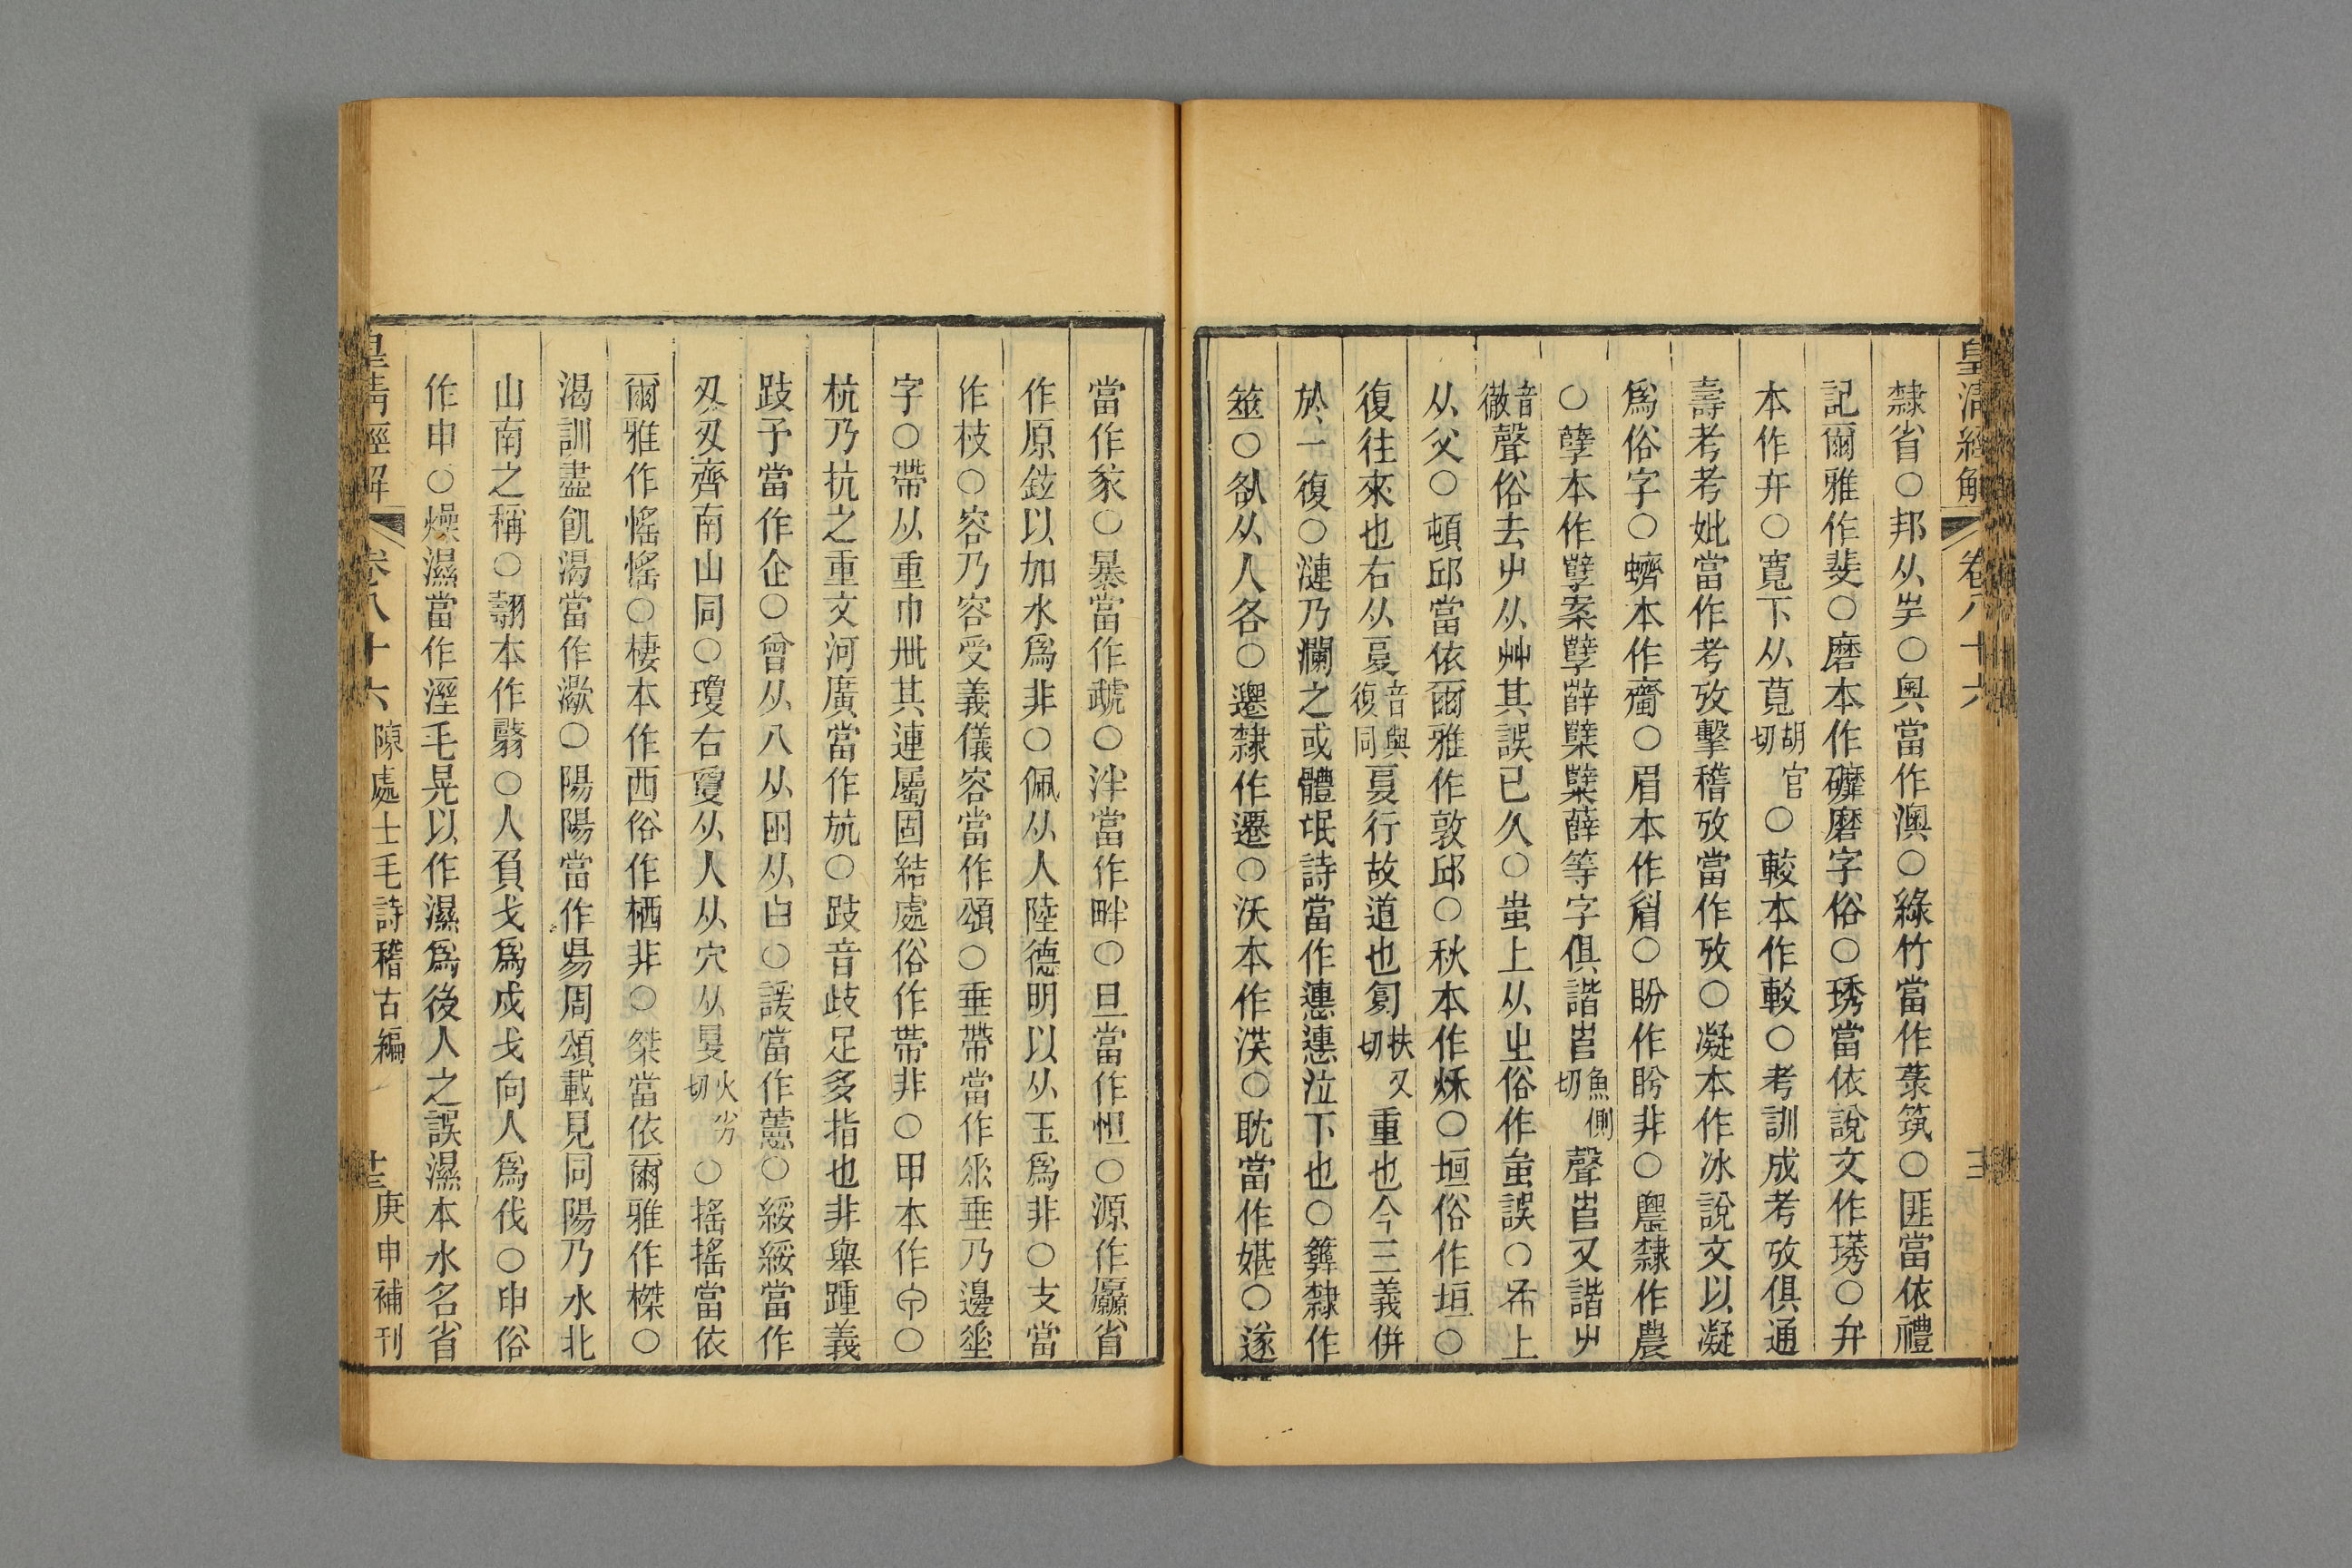 皇清經解 卷八十六
隸省○邦从㞷○奧當作澳○綠竹當作菉筑○匪當依禮
記爾雅作斐○磨本作䃺磨字俗○琇當依說文作璓○弁
本作㝸○寬下从萈胡官切○較本作較○考訓成考攷俱通
壽考考妣當作考攷擊稽攷當作攷○凝本作冰說文以凝
爲俗字○蠐本作齏○眉本作睂○盼作盻非○農隸作農
○孽本作孼案孼辥櫱糱薛等字俱諧𡴎魚側切聲𡴎又諧屮
音徹聲俗去屮从艸其誤已久○蚩上从㞢俗作蚩誤○布上
从父○頓邱當依爾雅作敦邱○秋本作秌○垣俗作垣○
復往來也右从㚆音與復同㚆行故道也匔扶又切重也今三義併
於一復○漣乃瀾之或體氓詩當作㦁㦁泣下也○筭隸作
筮○卻从人各○遷隸作遷○沃本作渶○耽當作媅○遂
當作㒸○暴當作虣○泮當作畔○旦當作悬○源作厵省
作原𨥁以加水爲非○佩从人陸德明以从玉爲非○支當
作枝○容乃容受義儀容當作頌○垂帶當作𠂹垂乃邊垂
字○帶从重巾𠦪其連屬固結處俗作帯非○甲本作𠇚○
杭乃抗之重文河廣當作斻○跂音歧足多指也非舉踵義
跂予當作企○曾从八从囪从曰○諼當作藼○綏綏當作
夊夊齊南山同○瓊右敻从人从穴从𥄎火劣切○搖搖當依
爾雅作愮愮○棲本作西俗作栖非○桀當依爾雅作榤○
渴訓盡飢渴當作㵣○陽陽當作昜周頌載見同陽乃水北
山南之稱○翿本作翳○人負戈爲戍戈向人爲伐○申俗
作申○燥濕當作溼毛晃以作濕爲後人之誤濕本水名省
皇清經解 卷八十六 陳處士毛詩稽古編 十三 庚申補刊